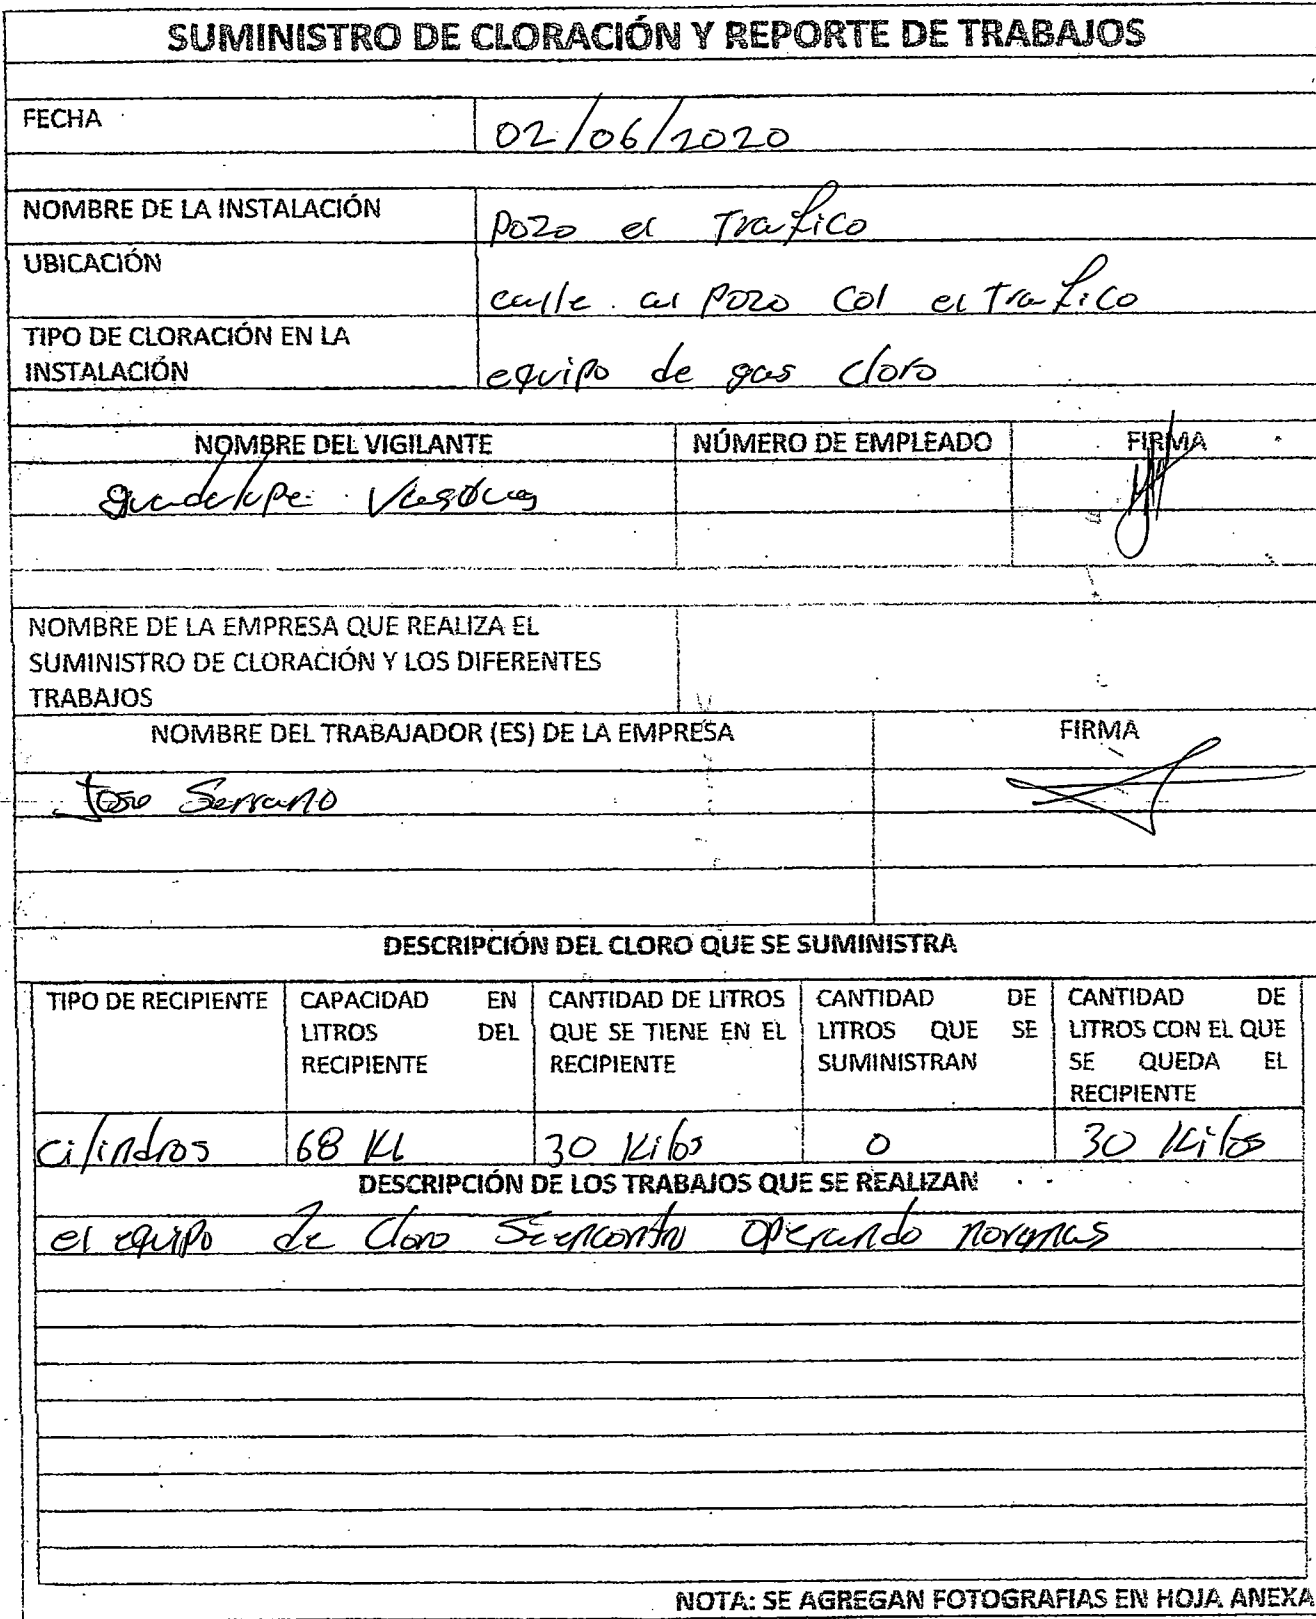 SUMINISTRO DE CLORACIÓN Y REPORTE DE TRABAJOS
FECHA 02/06/2020
NOMBRE DE LA INSTALACIÓN Pozo el Trafico
UBICACIÓN calle al Pozo Col el Trafico
TIPO DE CLORACIÓN EN LA
INSTALACIÓN equipo de gas cloro
NOMBRE DEL VIGILANTE NÚMERO DE EMPLEADO FIRMA
Guadalupe
NOMBRE DE LA EMPRESA QUE REALIZA EL
SUMINISTRO DE CLORACIÓN Y LOS DIFERENTES
TRABAJOS
NOMBRE DEL TRABAJADOR (ES) DE LA EMPRESA FIRMA
Jose Serrano
DESCRIPCIÓN DEL CLORO QUE SE SUMINISTRA
TIPO DE RECIPIENTE
CAPACIDAD EN
LITROS DEL
RECIPIENTE
CANTIDAD DE LITROS
QUE SE TIENE EN EL
RECIPIENTE
CANTIDAD DE
LITROS QUE SE
SUMINISTRAN
CANTIDAD DE
LITROS CON EL QUE
SE QUEDA EL
RECIPIENTE
cilindros 68 KL 30 Kilos 0 30 Kilos
DESCRIPCIÓN DE LOS TRABAJOS QUE SE REALIZAN
el equipo de Cloro Seencontro operando
NOTA: SE AGREGAN FOTOGRAFIAS EN HOJA ANEXA